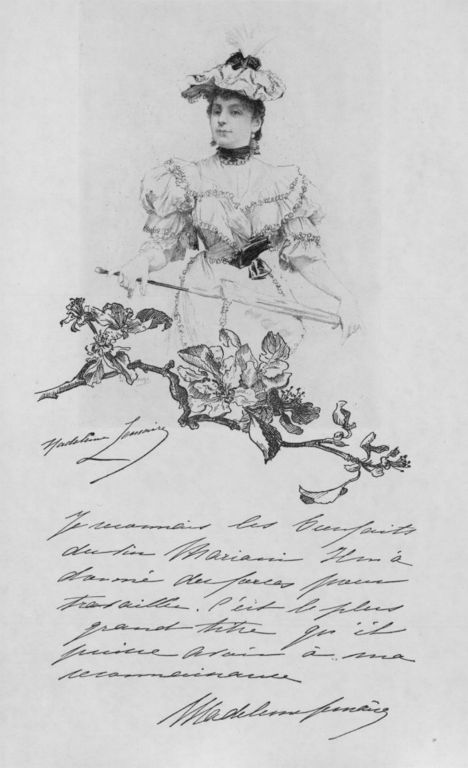 Madeleine Lemaire
Je reconnais les bienfaits
du vin Mariani Il m'a
donné des forces pour
travailler. C'est le plus
grand titre qu'il
puisse avoir à ma
reconnaissance
Madeleine Lemaire